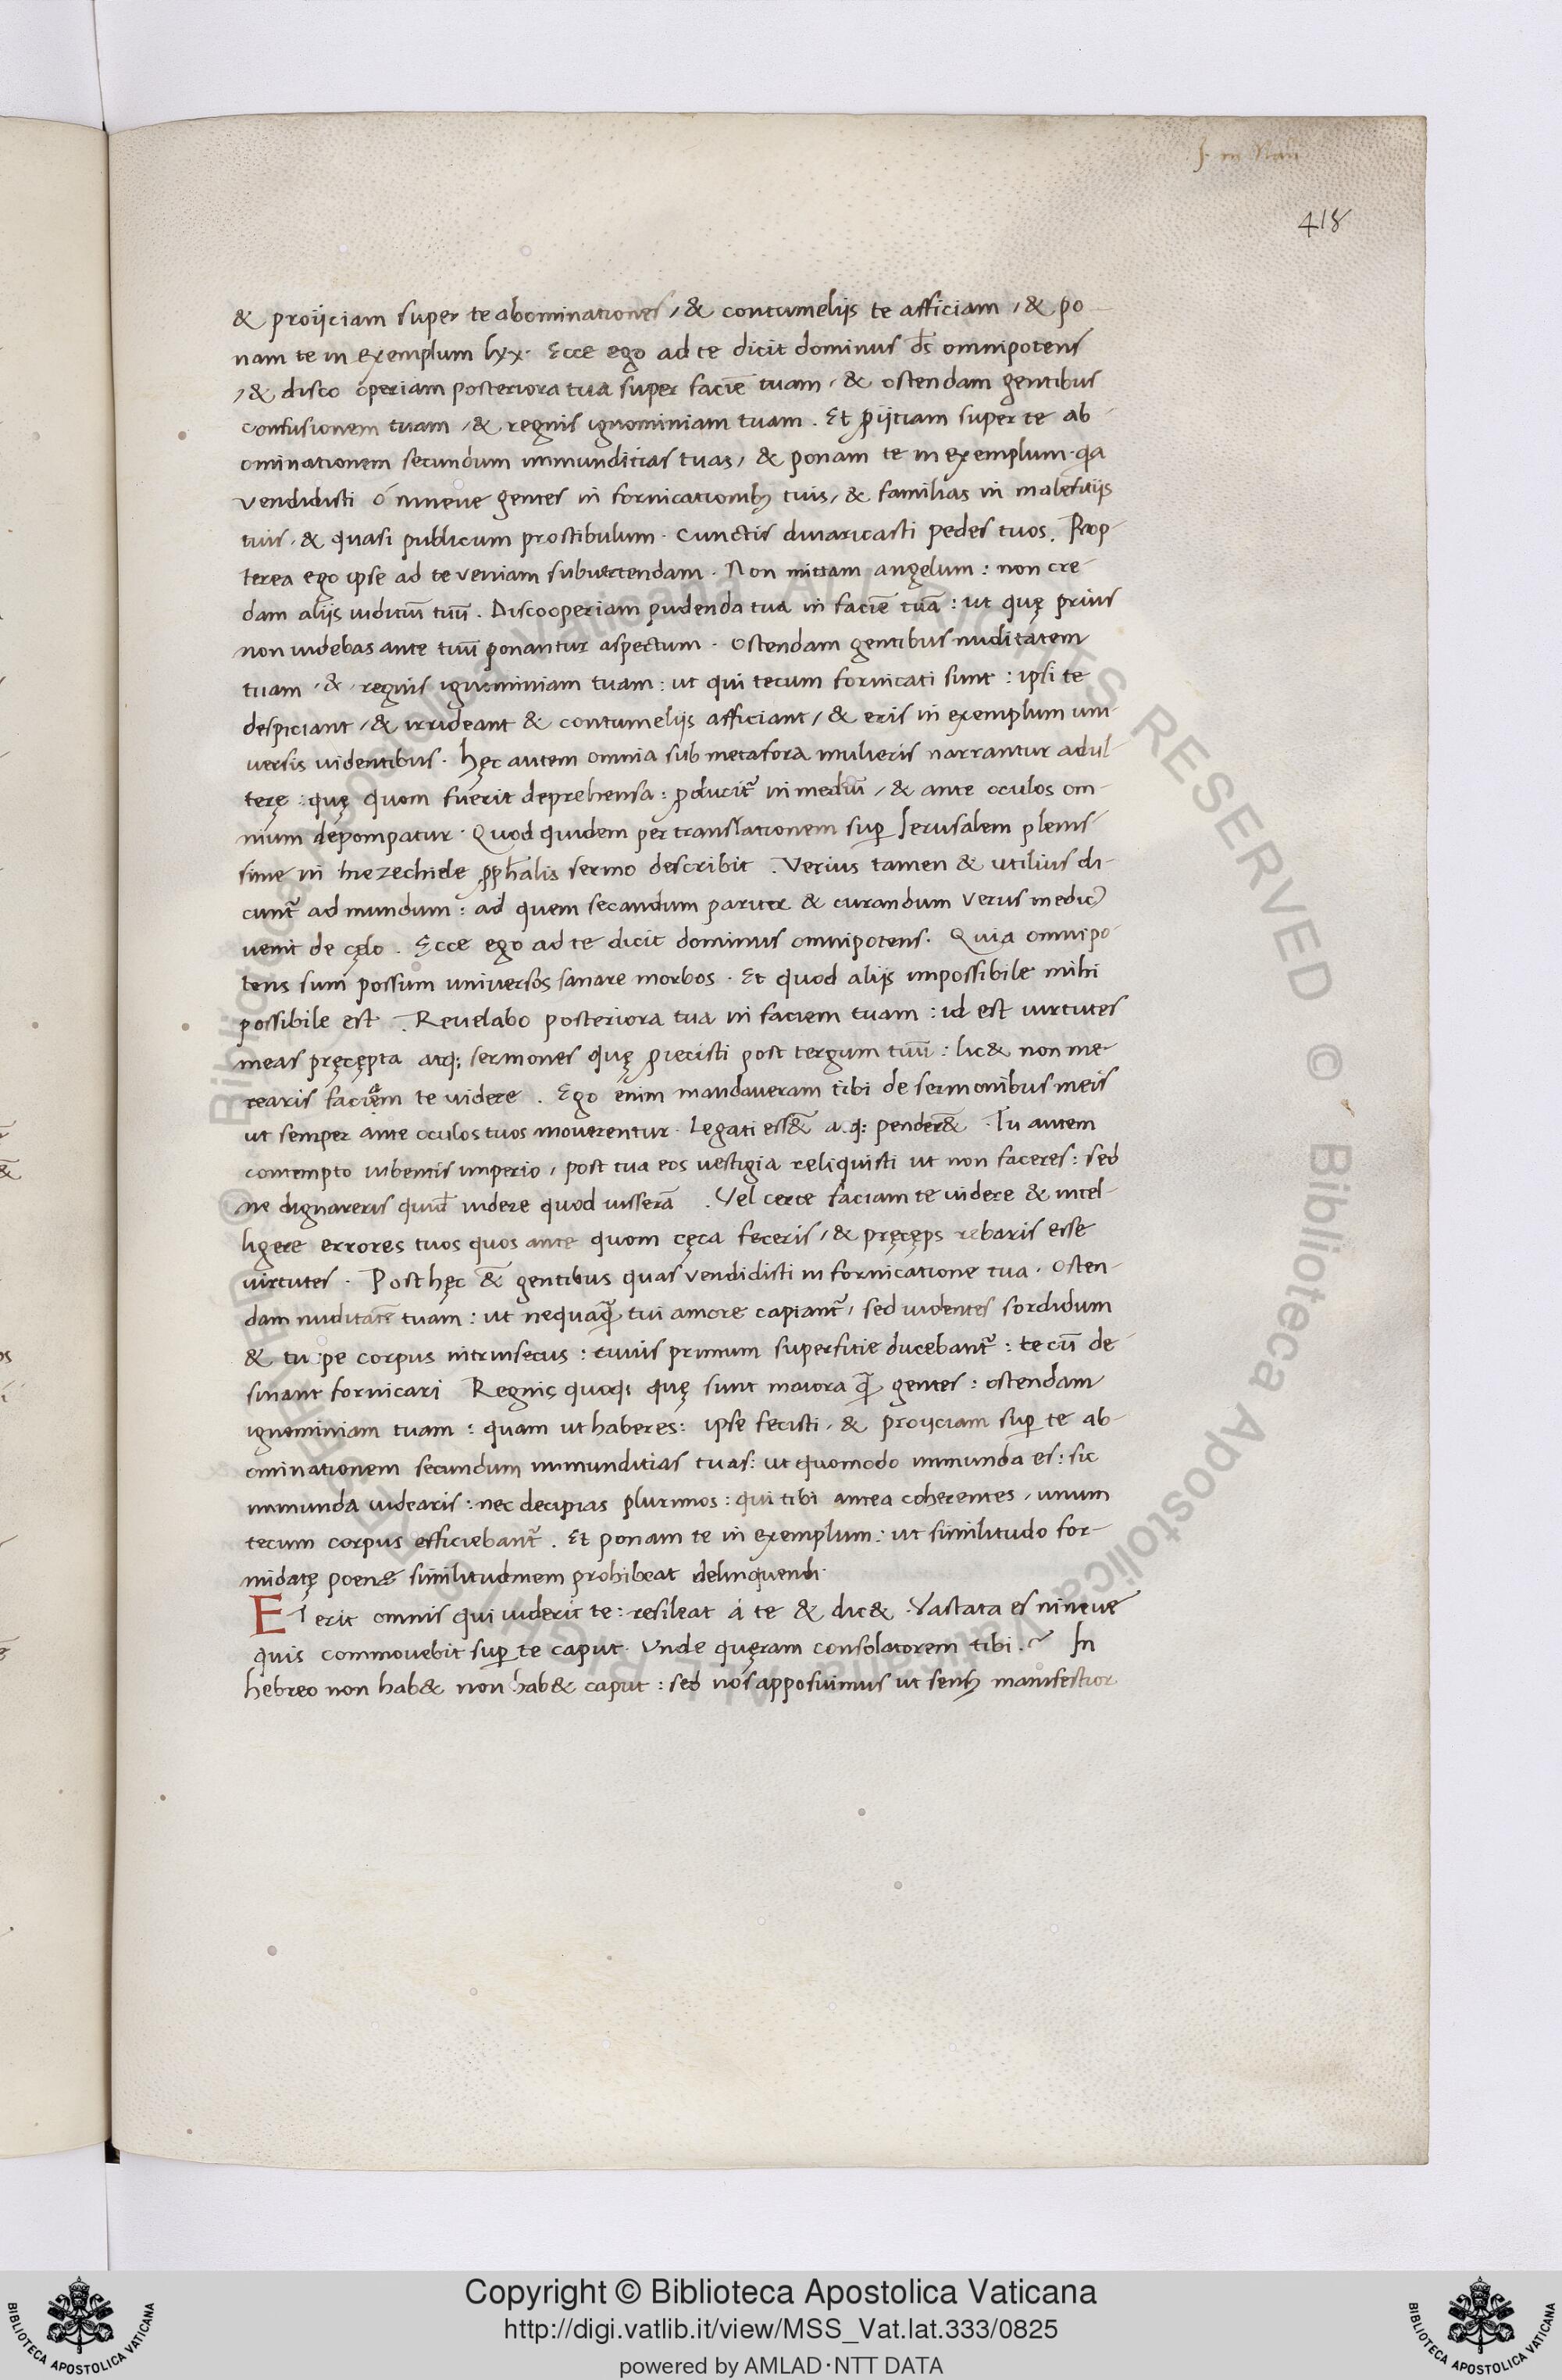 418
& proijciam super te abominationes, & contumelijs te afficiam, & po-
nam te in exemplum lxx. Ecce ego ad te dicit dominus ds̄ omnipotens
, & disco operiam posteriora tua super faciē tuam, & ostendam gentibus
confusionem tuam, & regnis ignominiam tuam. Et ꝓijciam super te ab-
ominationem secundum immunditias tuas, & ponam te in exemplum. qa
vendidisti ó nineue gentes in fornicationibꝫ tuis, & familias in malefitijs
tuis, & quasi publicum prostibulum. Cunctis diuaricasti pedes tuos. Prop-
terea ego ipse ad te veniam subuertendam. Non mittam angelum: non cre-
dam alijs iuditiū tuū. Discooperiam pudenda tua in faciē tuā: ut quę prius
non uidebas ante tuū ponantur aspectum. Ostendam gentibus nuditatem
tuam, & regnis ignominiam tuam: ut qui tecum fornicati sunt: ipsi te
despiciant, & irrideant & contumelijs afficiant, & eris in exemplum uni-
uersis uidentibus. hęc autem omnia sub metafora mulieris narrantur adul-
terę: quę quom fuerit deprehensa: ꝓducit᷑ in mediū, & ante oculos om-
nium depompatur. Quod quidem per translationem suꝑ Jerusalem plenis-
sime in hiezechiele ꝓph̄alis sermo describit. Verius tamen & utilius di-
cunt᷑ ad mundum: ad quem secandum pariter & curandum verus medicꝰ
uenit de cęlo. Ecce ego ad te dicit dominus omnipotens. Quia omnipo-
tens sum possum universos sanare morbos. Et quod alijs impossibile mihi
possibile est. Reuelabo posteriora tua in faciem tuam: id est uirtutes
meas pręcępta atqꝫ sermones quę ꝓiecisti post tergum tuū: lic& non me-
rearis faciem te uidere. Ego enim mandaveram tibi de sermonibus meis
ut semper ante oculos tuos mouerentur. Legati ess&̄ a.qꝫ pender&̄. Tu autem
contempto iubentis imperio, post tua eos uestigia reliquisti ut non faceres: sed
ne dignareris quid̄ uidere quod iusserā. Vel certe faciam te uidere & intel-
ligere errores tuos quos ante quom cęca feceris, & pręcęps rebaris esse
uirtutes. Post hęc &̄ gentibus quas vendidisti in fornicatione tua. Osten-
dam nuditatē tuam: ut nequaq̄ tui amore capiant᷑, sed uidentes sordidum
& tu pe corpus intrinsecus: cuius primum superfitie ducebant᷑: te cū de-
sinant fornicari Regnis quoqꝫ quę sunt maiora q̄ gentes: ostendam
ignominiam tuam: quam ut haberes: ipse fecisti, & proijciam suꝑ te ab-
ominationem secundum immunditias tuas: ut quomodo immunda es: sic
immunda uidearis: nec decipias plurimos: qui tibi antea coherentes, unum
tecum corpus efficiebant᷑. Et ponam te in exemplum: ut similitudo for-
midatę poenę similitudinem prohibeat delinquendi.
ET erit omnis qui uiderit te: resileat á te & dic&. Vastata es nineue
quis commouebit suꝑ te caput. Vnde quęram consolatorem tibi. In
hebreo non hab& non hab& caput: sed nos apposuimus ut sensꝫ manifestior
Copyright © Biblioteca Apostolica Vaticana
http://digi.vatlib.it/view/MSS_Vat.lat.333/0825
powered by AMLAD·NTT DATA
BIBLIOTECA APOSTOLICA VATICANA
BIBLIOTECA APOSTOLICA VATICANA